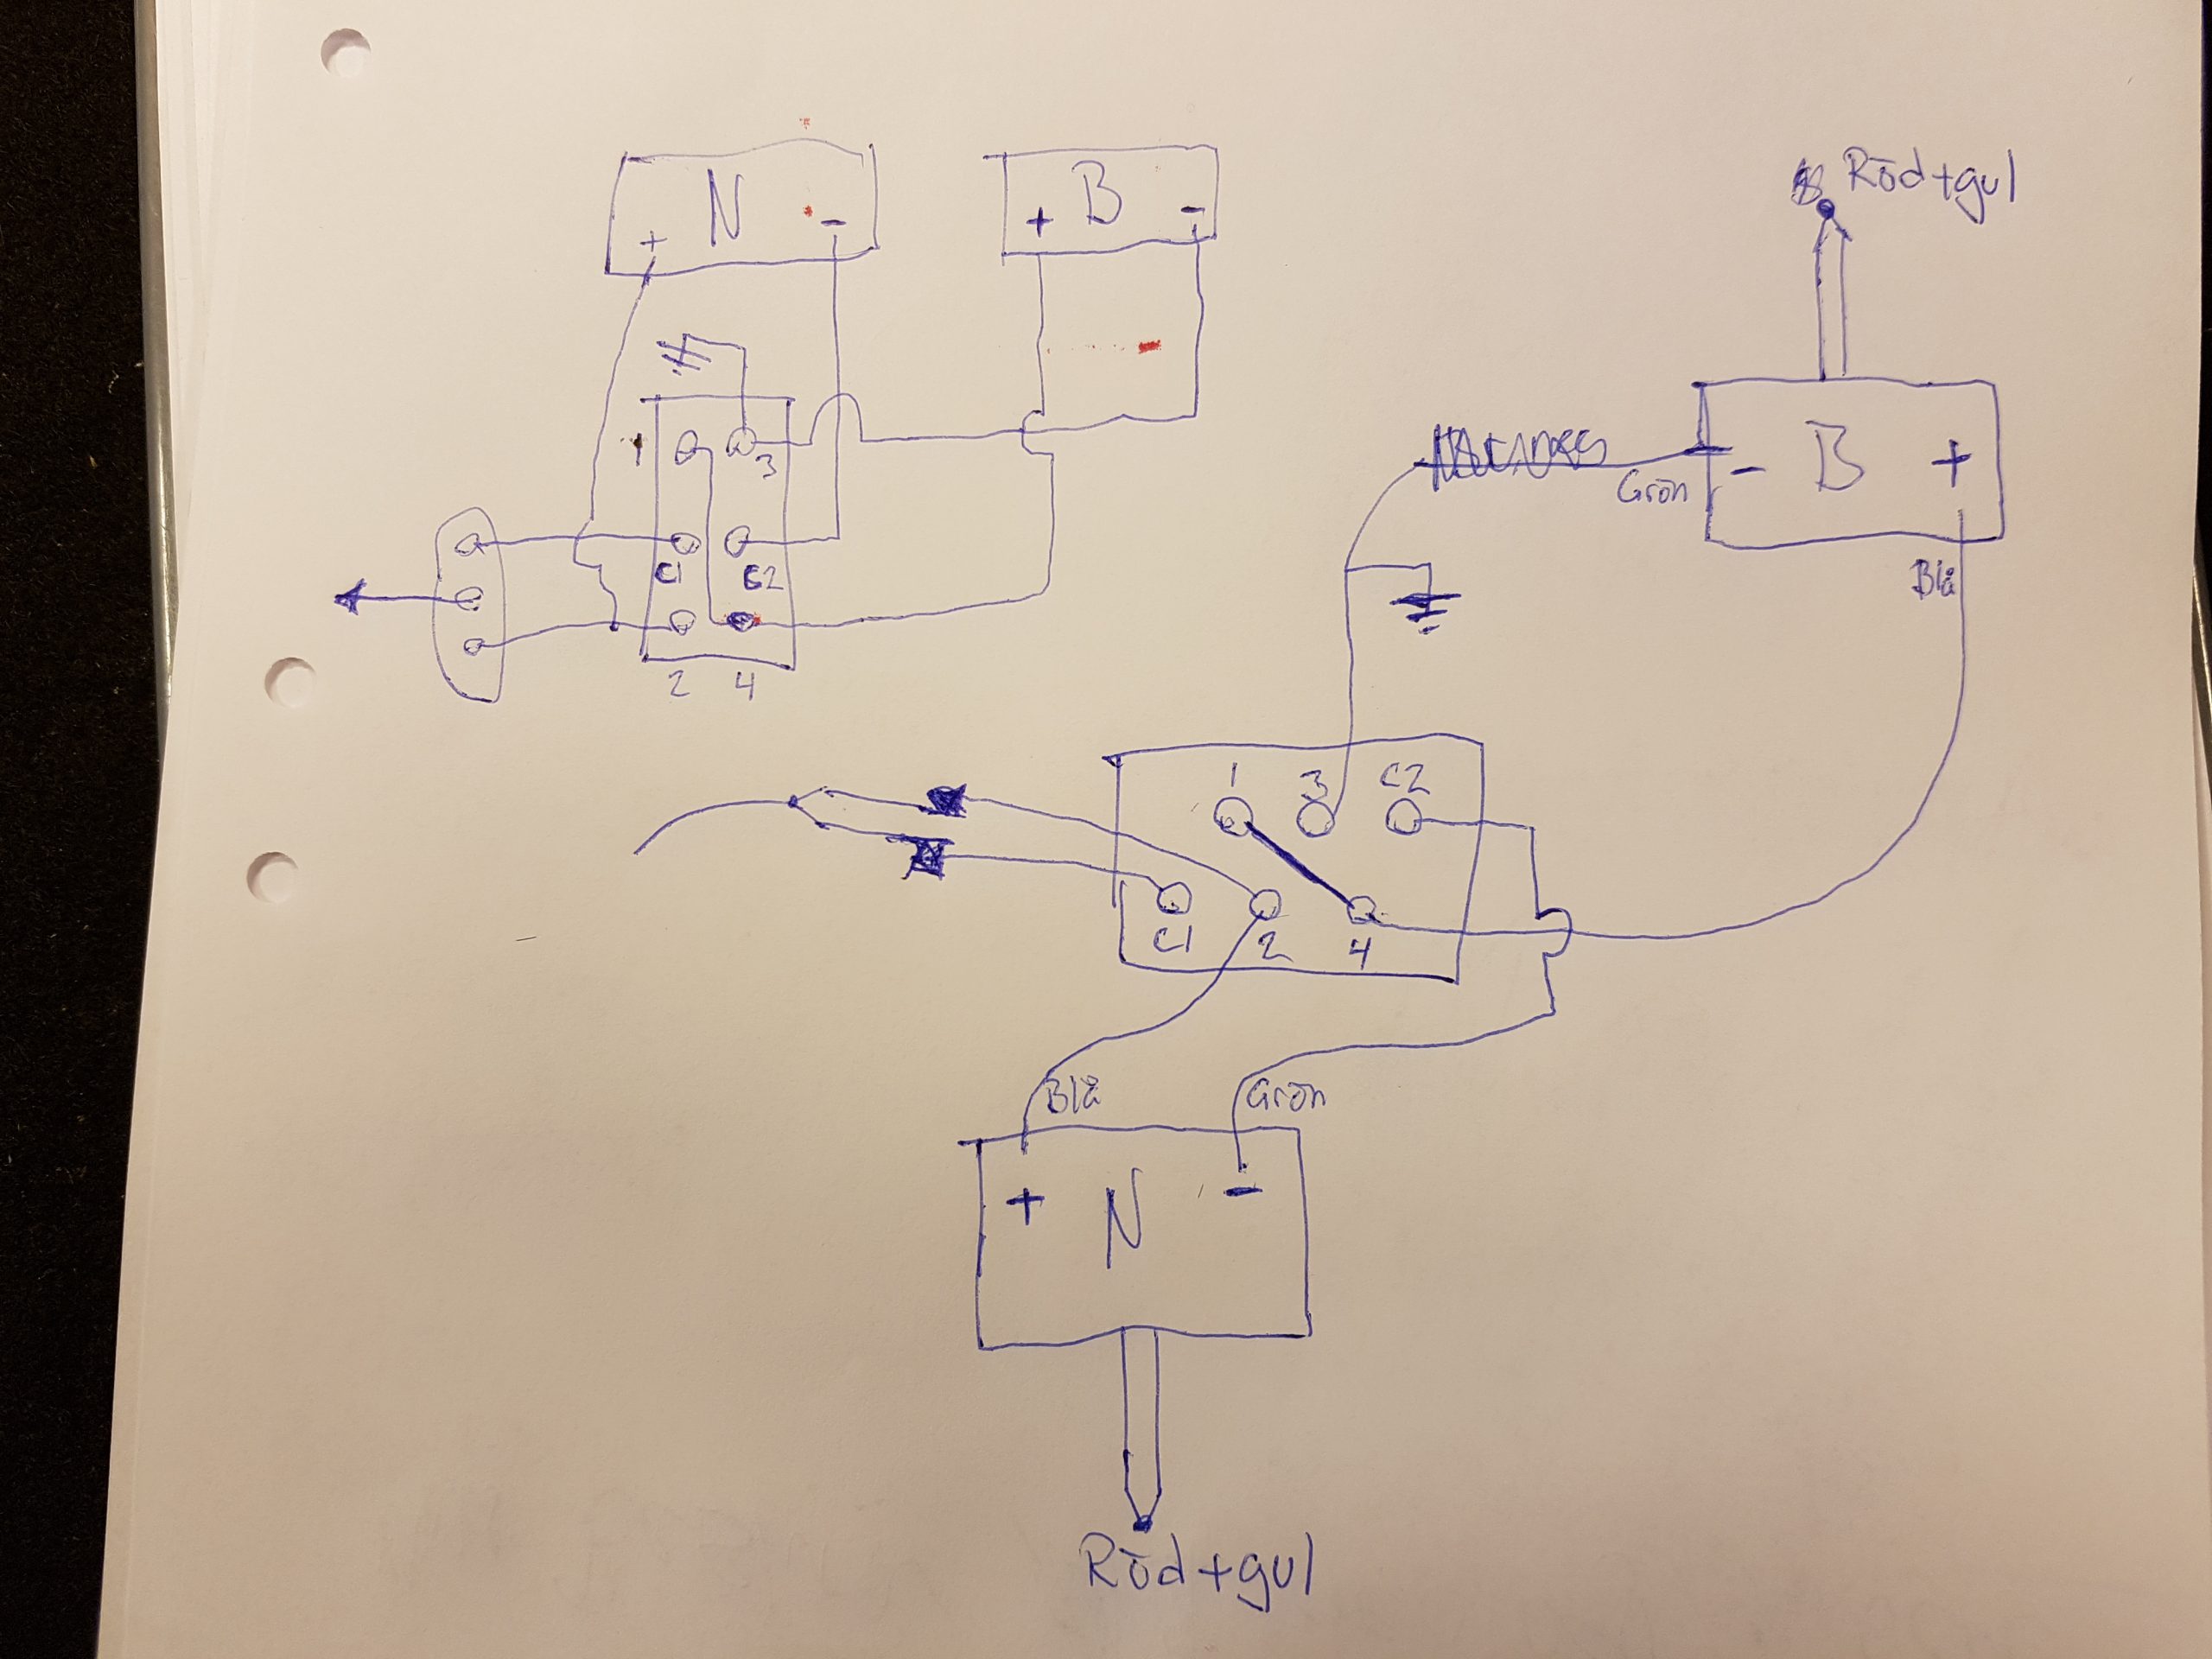 N
+ -
B
+ -
1
3
C1 C2
2 4
Röd+gul
- B +
Grön
Blå
1 3 C2
C1 2 4
Blå Grön
+ N -
Röd+gul